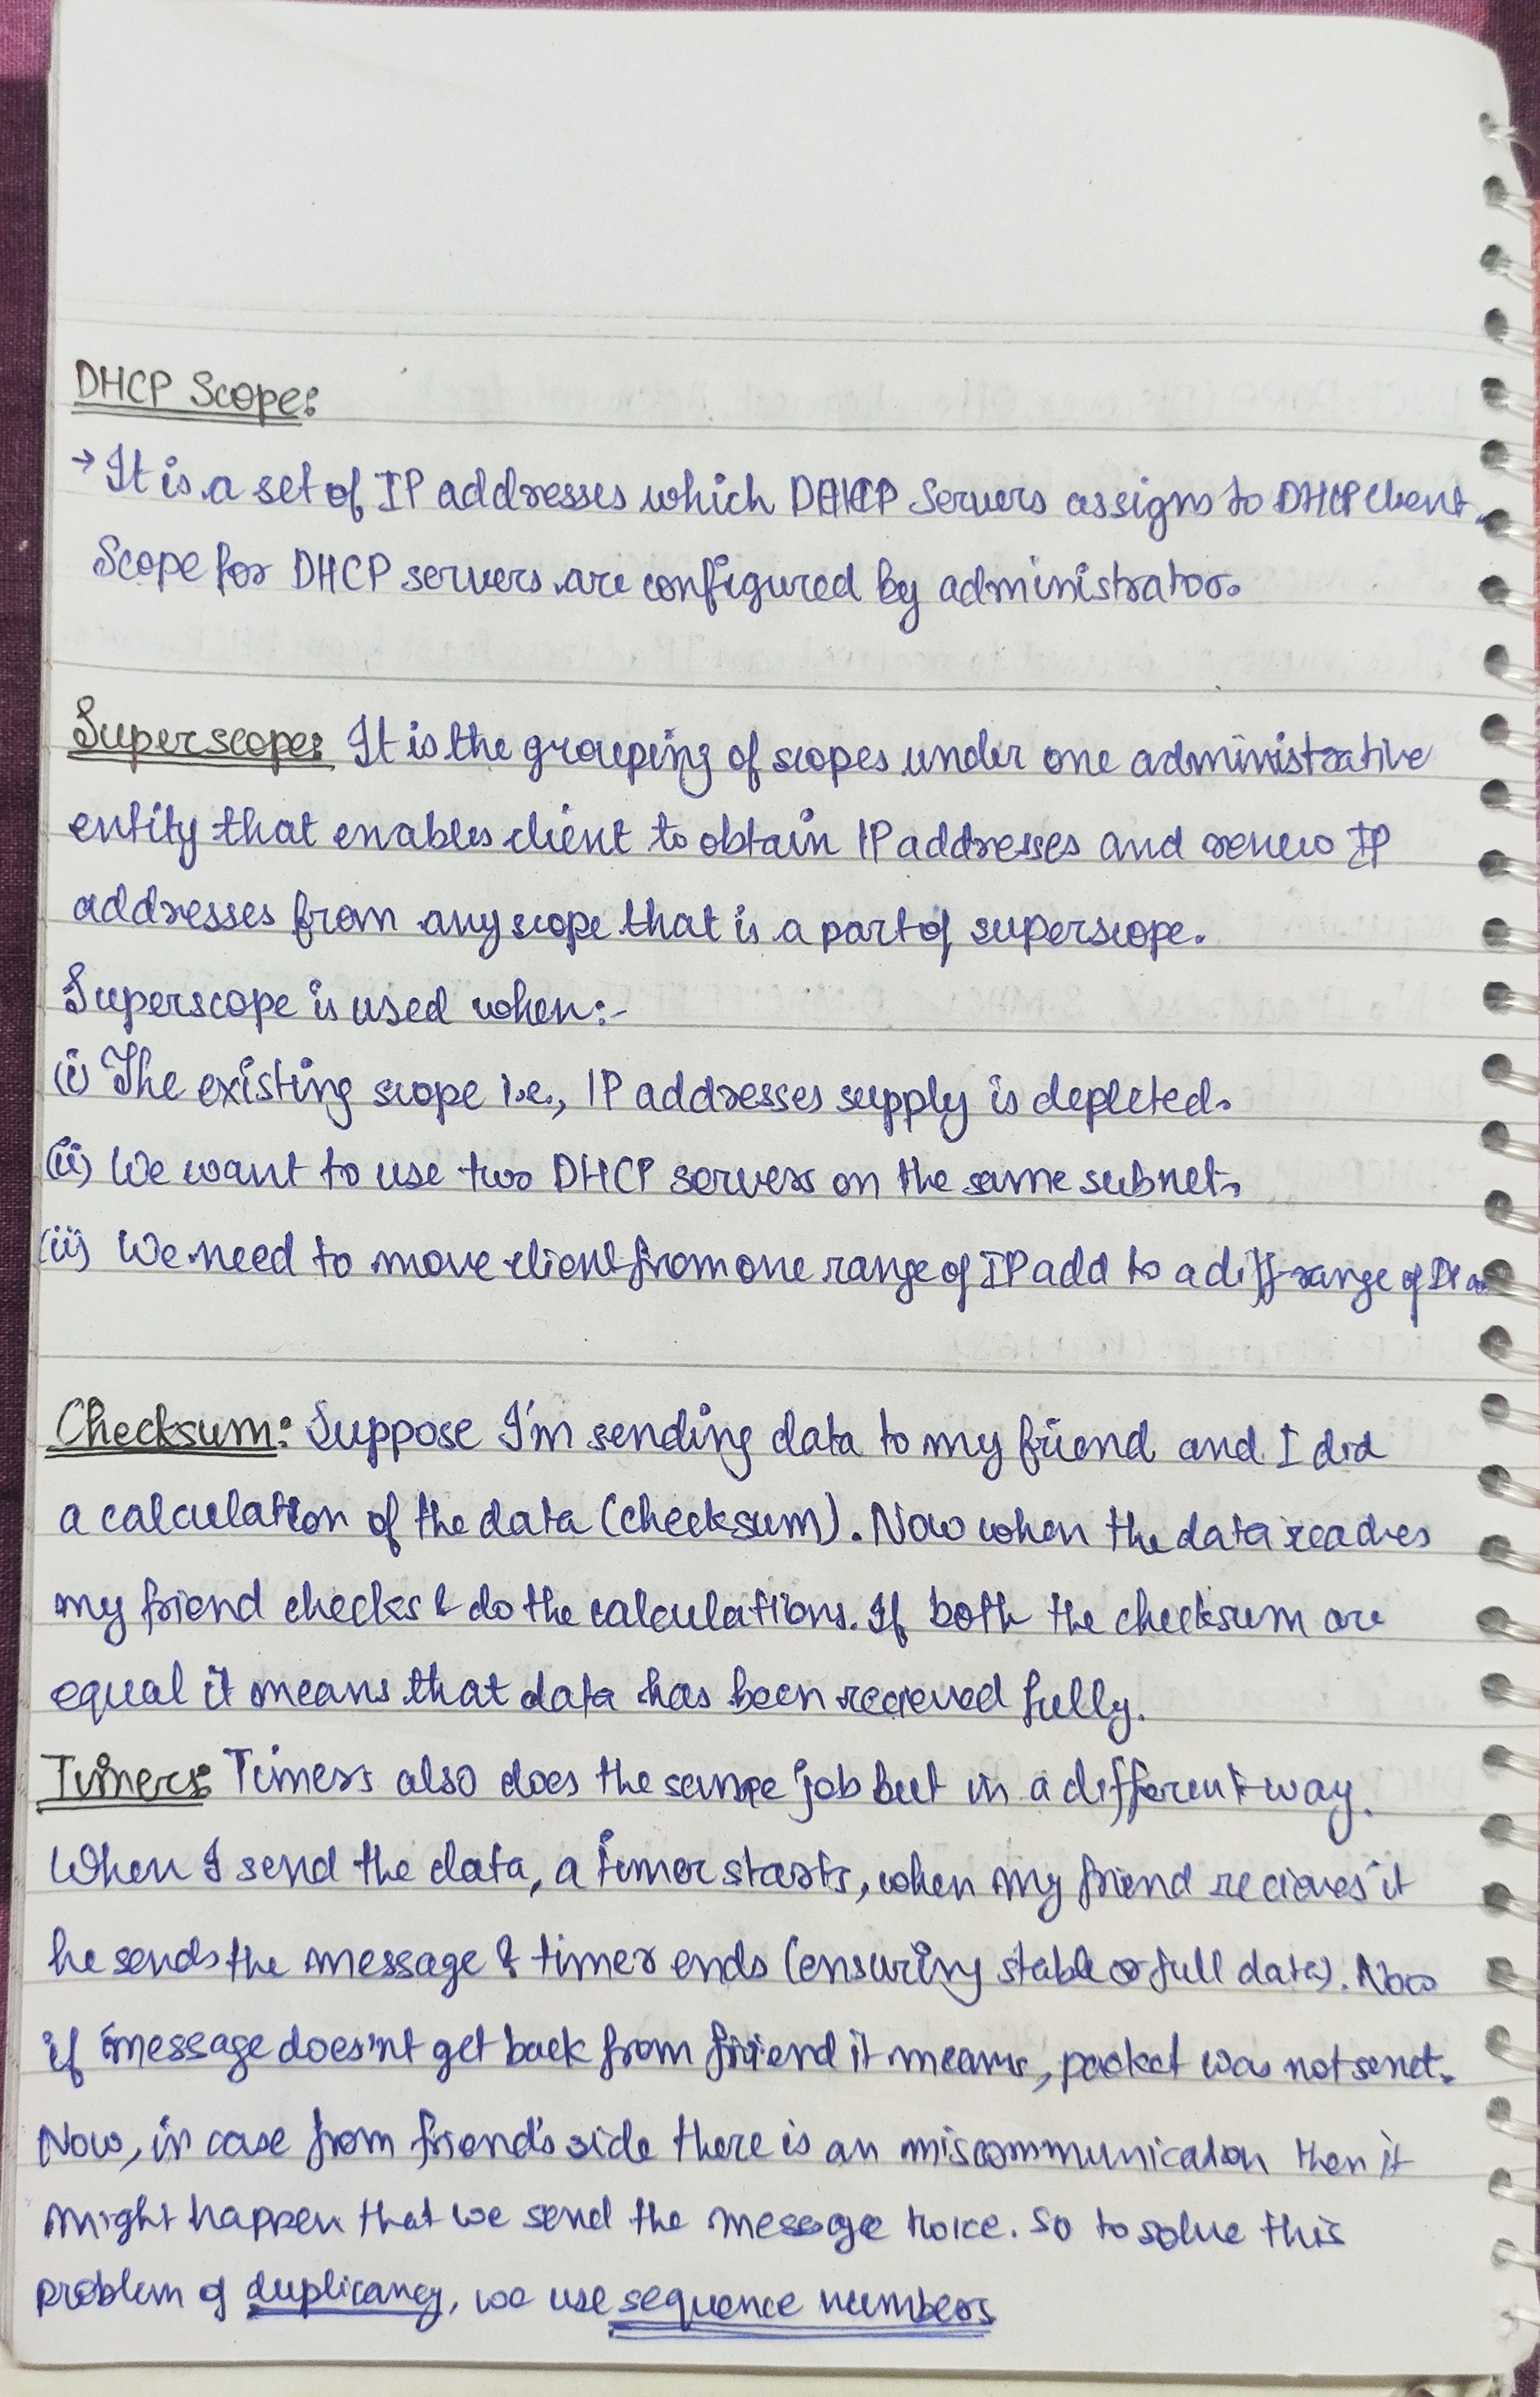 DHCP Scope:
→ It is a set of IP addresses which DHCP Servers assigns to DHCP Client.
Scope for DHCP servers are configured by administrator.
Superscope: It is the grouping of scopes under one administrative
entity that enables client to obtain IP addresses and renew IP
addresses from any scope that is a part of superscope.
Superscope is used when:-
(i) The existing scope i.e., IP addresses supply is depleted.
(ii) We want to use two DHCP servers on the same subnet.
(iii) We need to move client from one range of IP add to a diff range of IP
Checksum: Suppose I'm sending data to my friend and I did
a calculation of the data (checksum). Now when the data reaches
my friend checks & do the calculations. If both the checksum are
equal it means that data has been recieved fully.
Timers: Timers also does the same job but in a different way.
When I send the data, a timer starts, when my friend recieves it
he sends the message & timer ends (ensuring stable full data). Now
if message does'nt get back from friend it means, packet was not sent.
Now, in case from friend's side there is an miscommunication then it
might happen that we send the message twice. So to solve this
problem of duplicancy, we use sequence numbers